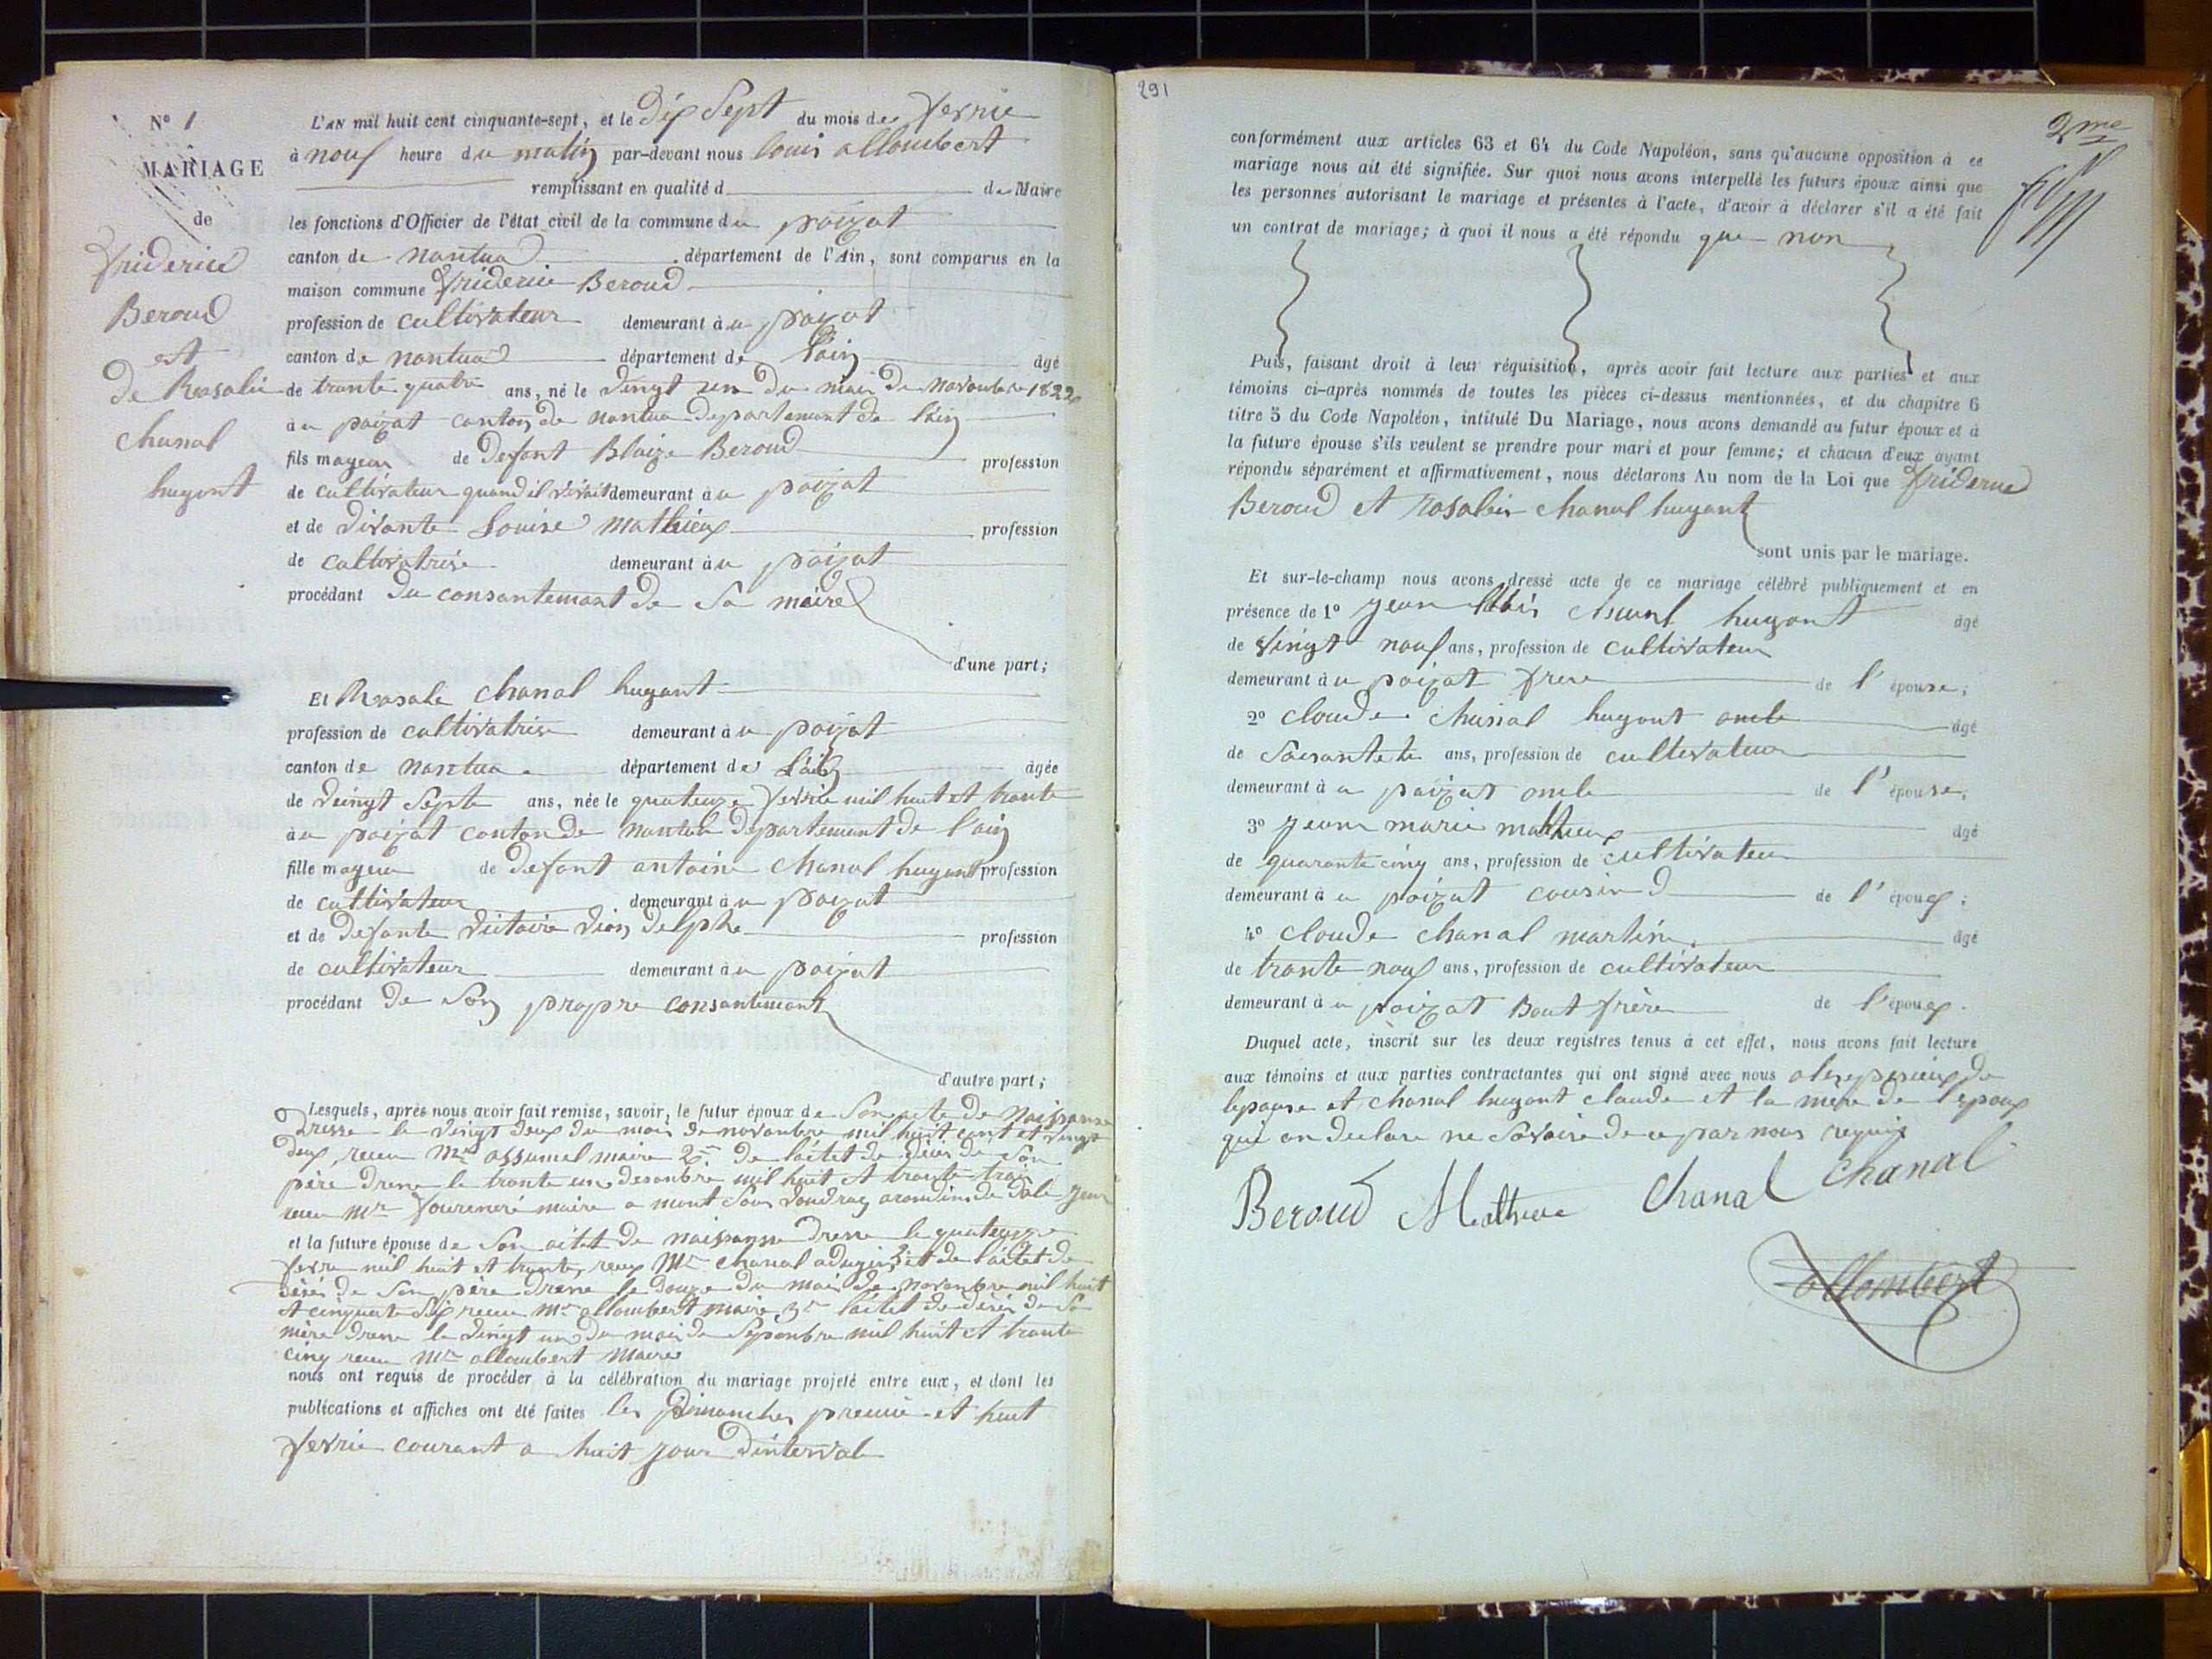 N° 1
MARIAGE
de
friderice
Beroud
et
de Rosalie
chanal
hugont
L'AN mil huit cent cinquante-sept, et le Dix Sept du mois de fevrie
à nouf heure du matin par-devant nous louis allombert
remplissant en qualité d de Maire
les fonctions d'Officier de l'état civil de la commune du poizat
canton de nantua département de l'Ain, sont comparus en la
maison commune friderice Beroud
profession de cultivateur demeurant à u poizat
canton de nantua département de l'ain âgé
de trante quatre ans, né le vingt un du mois de novembre 1822
à u poizat canton de nantua departement de l'ain
fils mageur de defont Blaize Beroud profession
de cultivateur quand il vivait demeurant à u poizat
et de vivante Louise mathieux profession
de cultivatrise demeurant à u poizat
procédant du consantemant de sa maire
d'une part;
Et Rosalie chanal hugont
profession de cultivatrise demeurant à u poizat
canton de nantua département de l'ain âgée
de veingt septe ans, née le quatorze fevrie mil huit et trante
à u poizat canton de nantua departement de l'ain
fille mageur de defont antoine chanal hugont profession
de cultivateur demeurant à u poizat
et de defante victoire vion delphe profession
de cultivateur demeurant à u poizat
procédant de son propre consantemant
d'autre part;
Lesquels, après nous avoir fait remise, savoir, le futur époux de son acte de naissanse
dresse le veingt deux du mois de novanbre mil huit cent et vingt
deux, receu Mr assumel maire 2em de l'actet de déces de son
père dresse le trante un desanbre mil huit et trante trois
receu Mr maire a mont sous voudrey de dole jura
et la future épouse de son actet de naissanse dresse le quatorze
fevrie mil huit et trante, receu Mr chanal et de l'actet de
désés de son père dresse le douze du mois de novanbre mil huit
et cinquante six receu Mr allombert maire 3e l'actet de désés de sa
mère dresse le vingt un du mois de sepanbre mil huit et trante
cinq receu Mr allombert maire
nous ont requis de procéder à la célébration du mariage projeté entre eux, et dont les
publications et affiches ont été faites les dimanches premie et huit
fevrie courant a huit jour d'interval
291
2me
conformément aux articles 63 et 64 du Code Napoléon, sans qu'aucune opposition à ce
mariage nous ait été signifiée. Sur quoi nous avons interpellé les futurs époux ainsi que
les personnes autorisant le mariage et présentes à l'acte, d'avoir à déclarer s'il a été fait
un contrat de mariage; à quoi il nous a été répondu que non
Puis, faisant droit à leur réquisition, après avoir fait lecture aux parties et aux
témoins ci-après nommés de toutes les pièces ci-dessus mentionnées, et du chapitre 6
titre 5 du Code Napoléon, intitulé Du Mariage, nous avons demandé au futur époux et à
la future épouse s'ils veulent se prendre pour mari et pour femme; et chacun d'eux ayant
répondu séparément et affirmativement, nous déclarons Au nom de la Loi que friderice
Beroud et rosalie chanal hugont
sont unis par le mariage.
Et sur-le-champ nous avons dressé acte de ce mariage célébré publiquement et en
présence de 1° jean chanal hugont âgé
de vingt nouf ans, profession de cultivateur
demeurant à u poizat frere de l'épouse;
2° cloude chanal hugont oncle âgé
de ans, profession de cultivateur
demeurant à u poizat oncle de l'épouse;
3° jean marie mathieux âgé
de quarante cinq ans, profession de cultivateur
demeurant à u poizat cousin de l'époux;
4° cloude chanal martin âgé
de trante nouf ans, profession de cultivateur
demeurant à u poizat Bout frère de l'époux.
Duquel acte, inscrit sur les deux registres tenus à cet effet, nous avons fait lecture
aux témoins et aux parties contractantes qui ont signé avec nous
lepouse et chanal hugont claude et la mere de l'epoux
qui on declare ne savoire de ce par nous requis
Beroud Mathieux Chanal Chanal
allombert